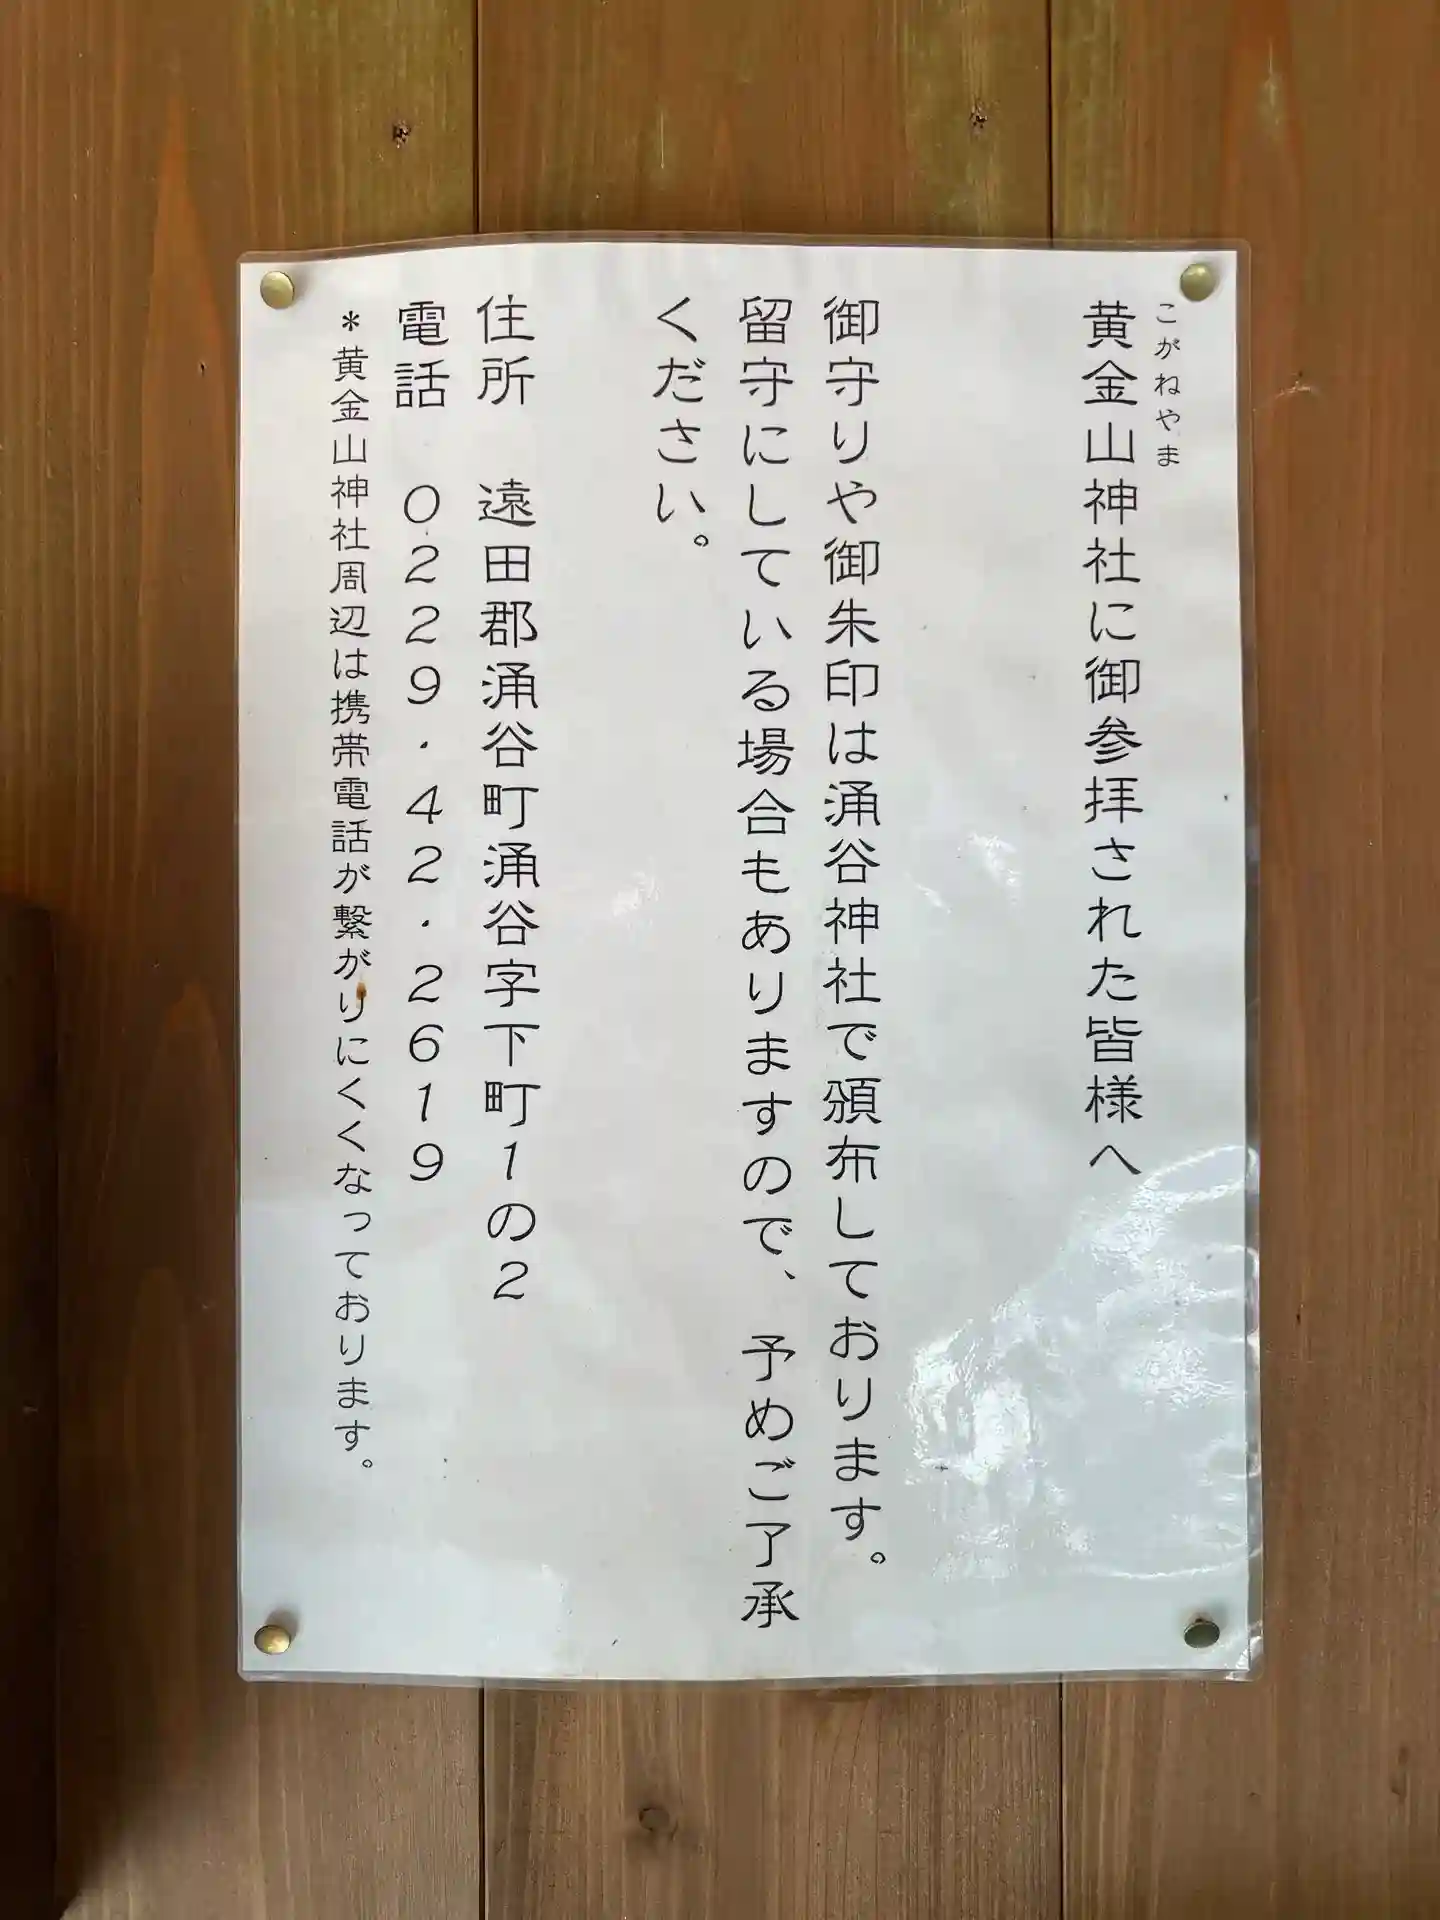 こがねやま
黄金山神社に御参拝された皆様へ
御守りや御朱印は涌谷神社で頒布しております。
留守にしている場合もありますので、予めご了承
ください。
住所　遠田郡涌谷町涌谷字下町1の2
電話　0229・42・2619
＊黄金山神社周辺は携帯電話が繋がりにくくなっております。